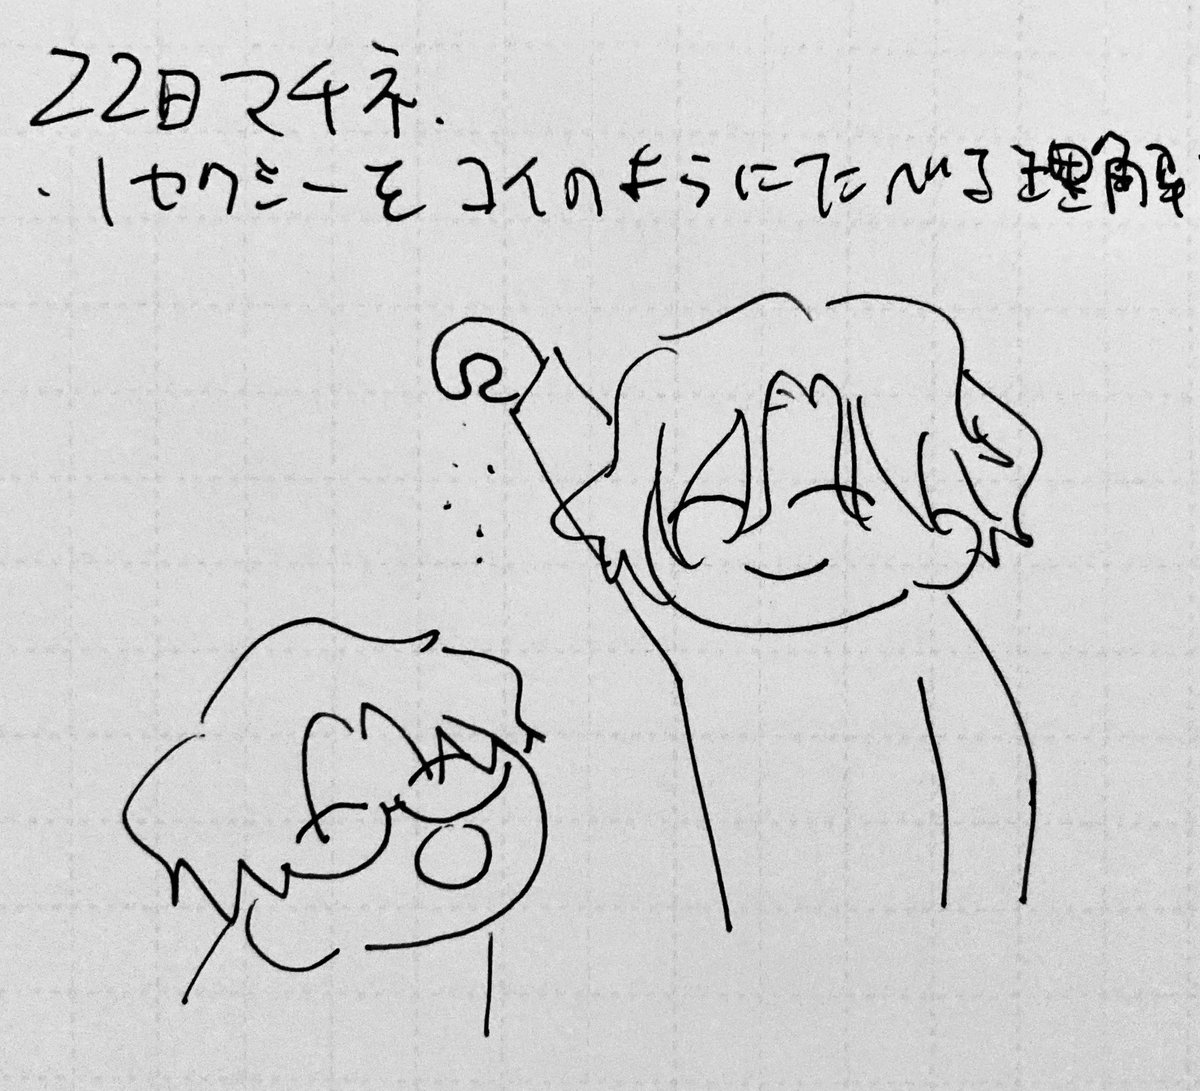 22日マチネ.
・1セクシーをコイのようにたべる理解